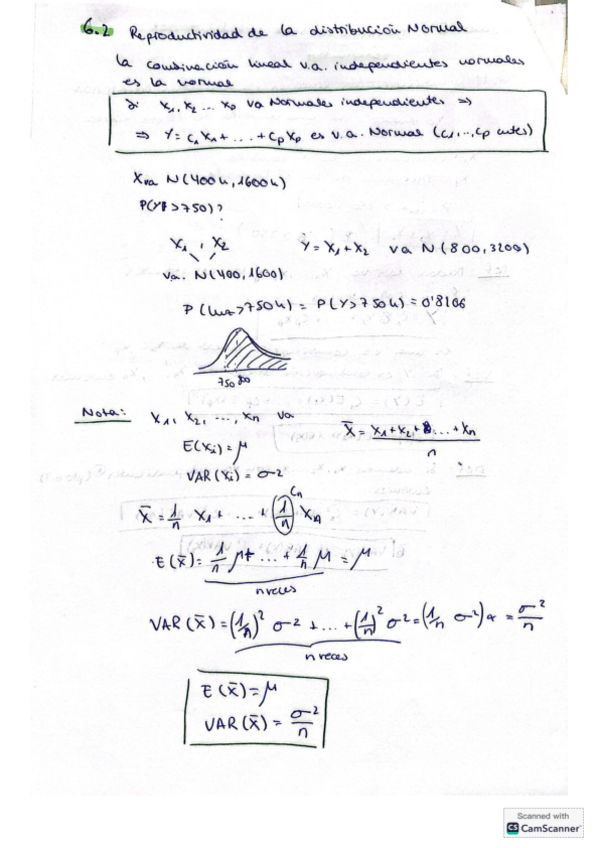 6.2 Reproductividad de la distribución Normal
la combinación lineal v.a. independientes normales
es la normal
Si X₁, X₂ ... Xp va Normales independientes ⇒
⇒ Y = C₁X₁ + ... + CpXp es v.a. Normal (C₁,..., Cp ctes)
X va N(400h, 1600h)
P(Y > 750)?
X₁, X₂ Y = X₁ + X₂ va N(800, 3200)
va. N(400, 1600)
P( > 750h) = P(Y > 750h) = 0'8106
750 800
Nota: X₁, X₂, ..., Xn va X̄ = X₁ + X₂ + ... + Xn
n
E(Xi) = μ
VAR(Xi) = σ²
Cn
X̄ = 1/n X₁ + ... + (1/n) Xn
E(X̄) = 1/n μ + ... + 1/n μ = μ
n veces
VAR(X̄) = (1/n)² σ² + ... + (1/n)² σ² = (1/n σ²) = σ²/n
n veces
E(X̄) = μ
VAR(X̄) = σ²/n
Scanned with
CS CamScanner